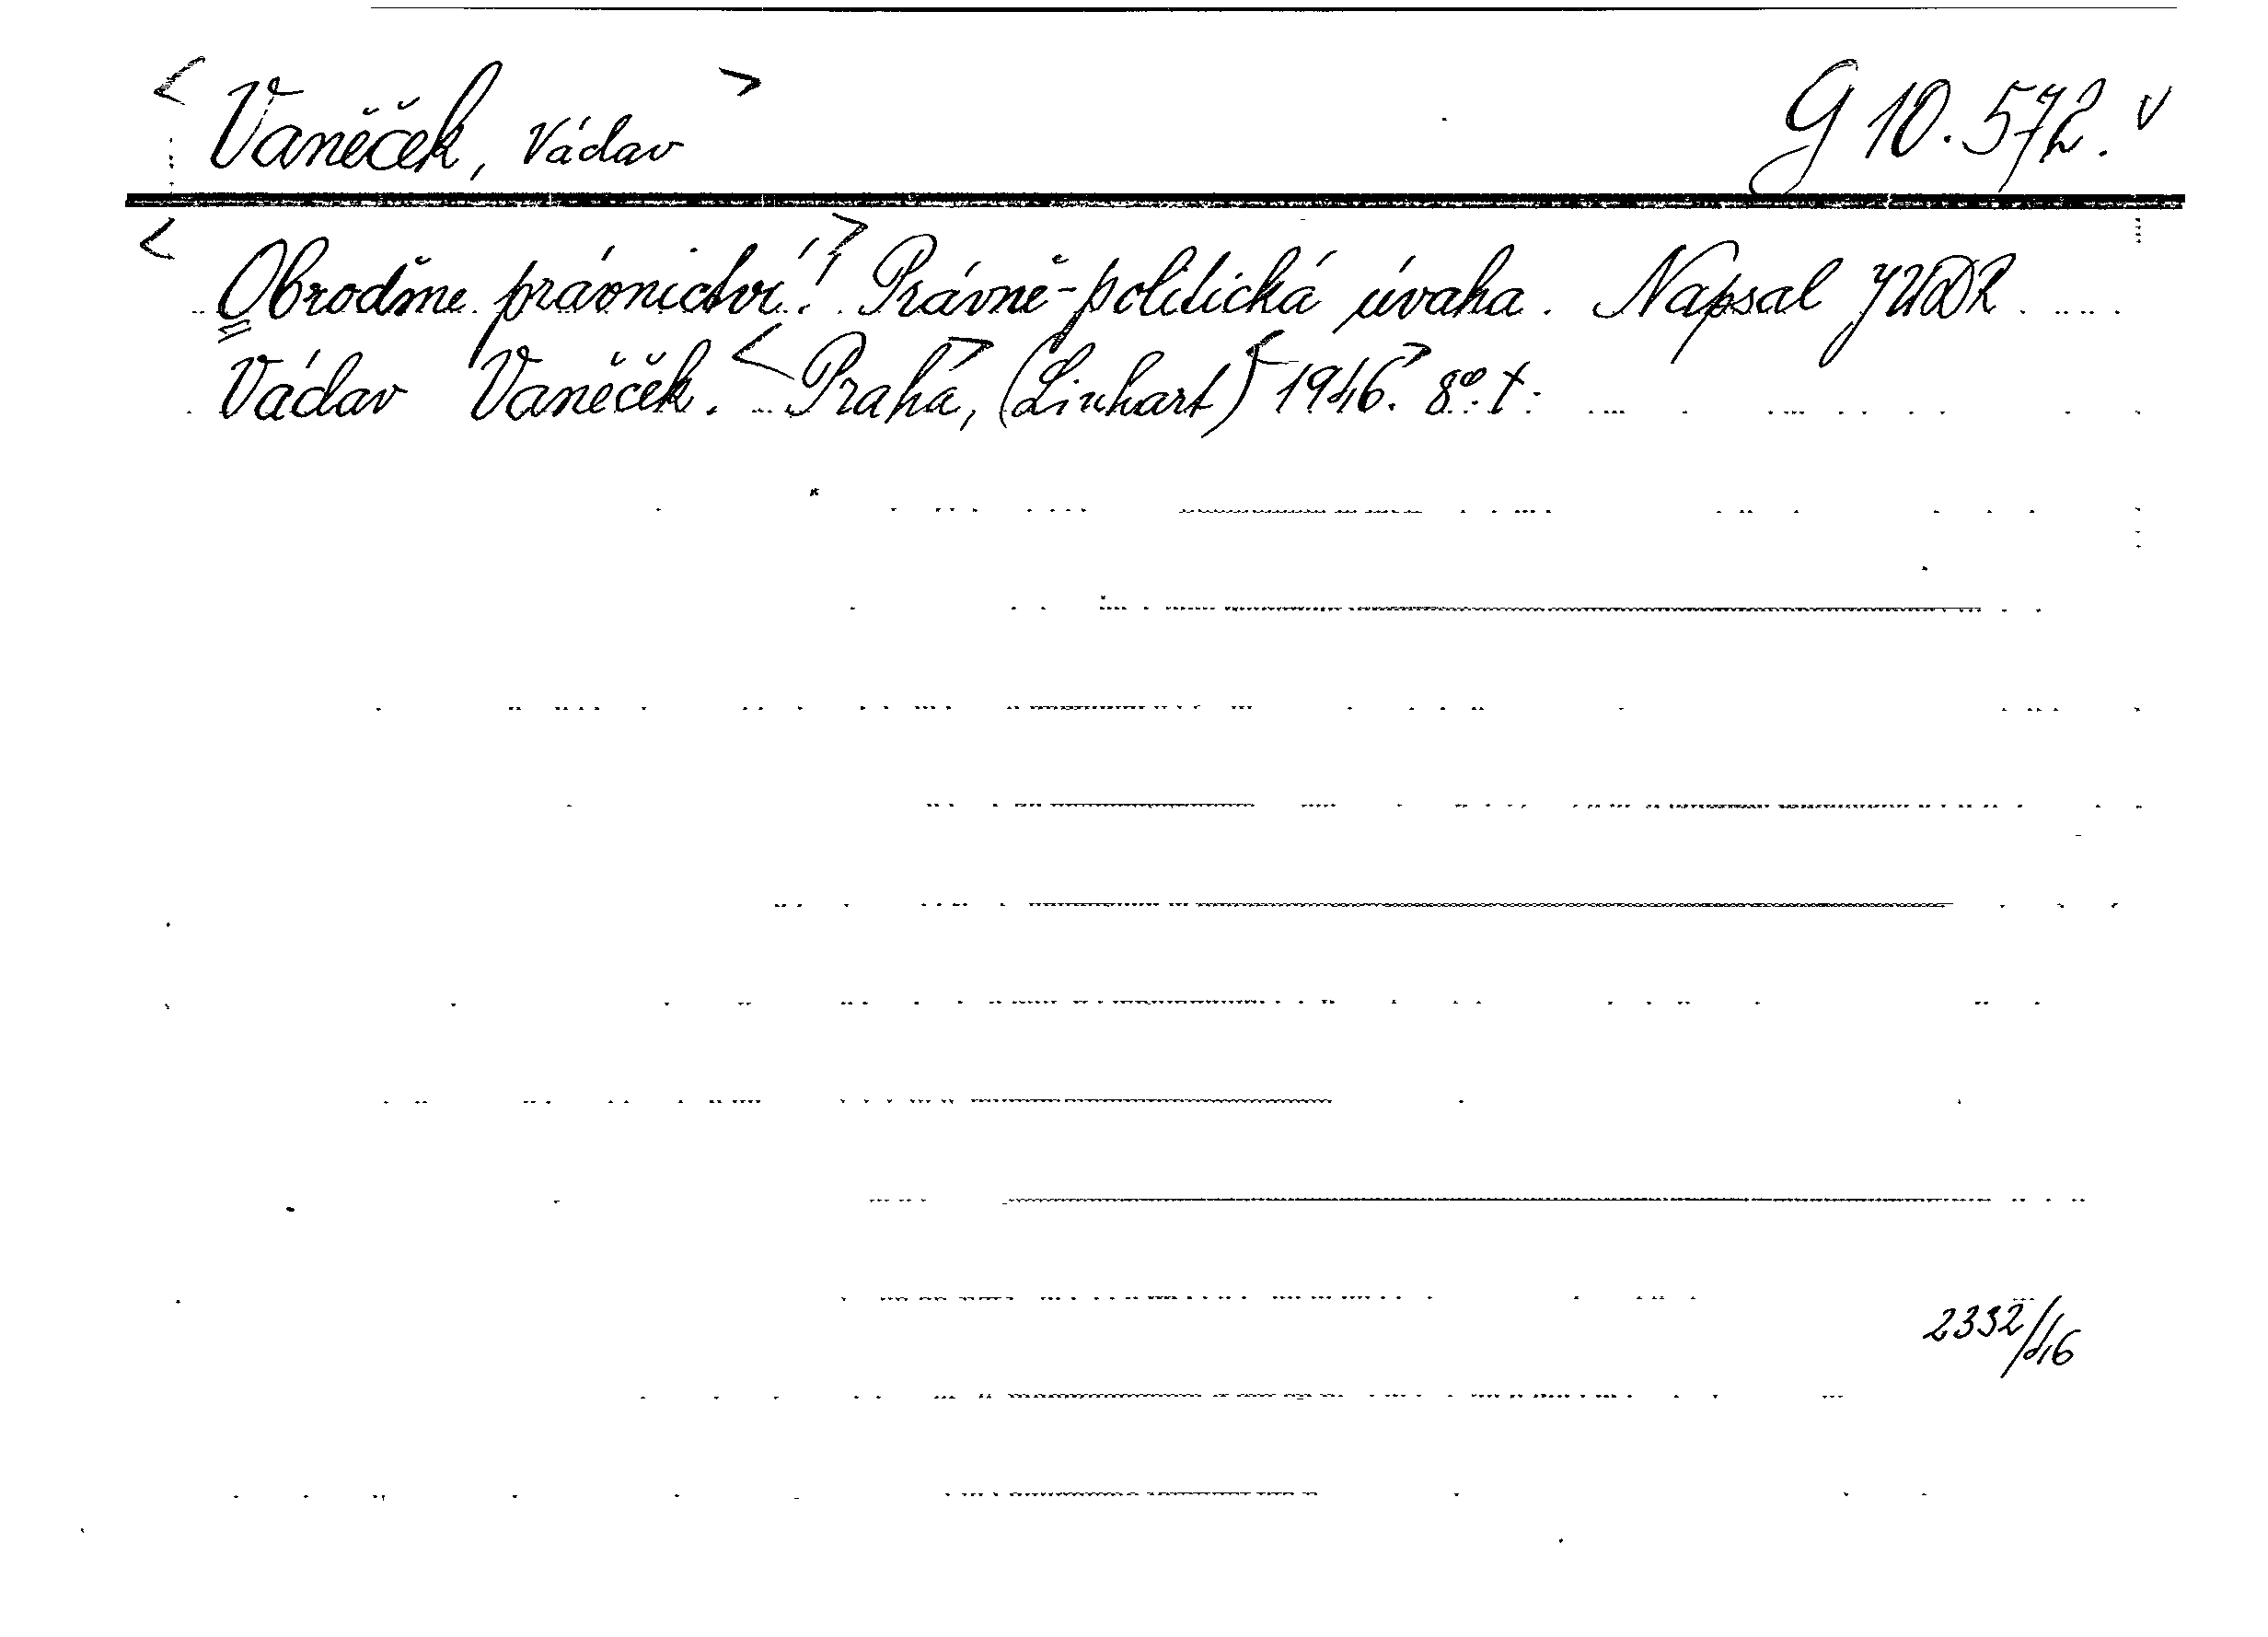 < Vaněček, Václav > G 10.572. v
< Obroďme právnictví! > Právně-politická úvaha. Napsal JUDR.
Václav Vaněček. < Praha >, (Linhart) < 1946 >. 8°. t.
2332/46